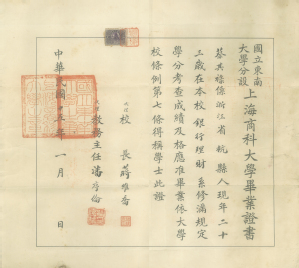 國立東南
大學分設
上海商科大學畢業證書
蔡其標係浙江省杭縣人現年二十
三歲在本校銀行理財系修滿規定
學分考查成績及格應准畢業依大學
校條例第七條得稱學士此證
校長蔣維喬
教務主任潘序倫
中華民國 五年一月 日